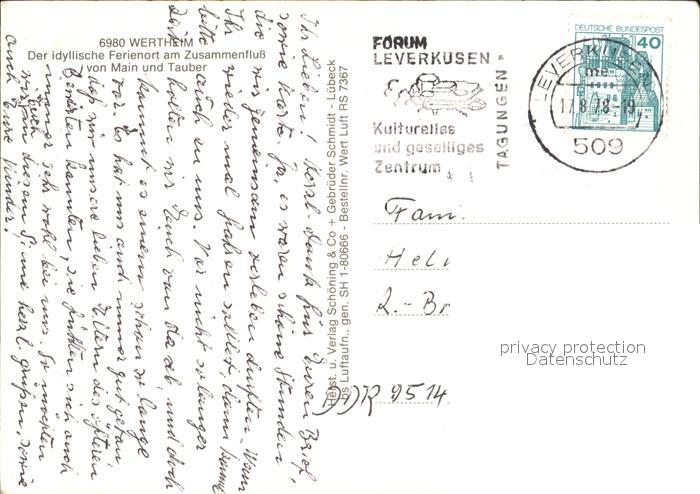 6980 WERTHEIM
Der idyllische Ferienort am Zusammenfluß
von Main und Tauber
Ihr Lieben! Herzl. Dank für Euren Brief,
sowie Karte. Ja, es waren schöne Stunden
die wir gemeinsam verleben durften. Wenn
Ihr wieder mal fahren solltet, dann kommt
bitte auch zu uns. Nur nicht so langer
Zeit
kommt es einem schon so lange
vor. Es hat uns auch immer gut getan,
daß wir unsere lieben Eltern des öfteren
bewirten konnten, sie fühlten sich auch
immer sehr wohl bei uns. So möchten
wir Euch in diesem Sinne herzl. grüßen, sowie
auch Eure Kinder.
Herst. u. Verlag Schöning & Co + Gebrüder Schmidt - Lübeck
os Luftaufn., gen. SH 1-80666 - Bestellnr. Wert Luft RS 7367
FORUM
LEVERKUSEN
Kulturelles
und geselliges
Zentrum
TAGUNGEN
DEUTSCHE BUNDESPOST
40
LEVERKUSEN
me
17.8.78-19
509
Fam.
Hel
R.-Br
DDR 9514
privacy protection
Datenschutz